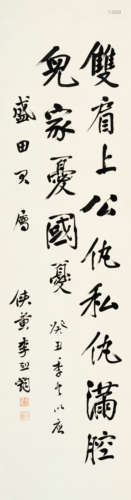 雙肩上公仇私仇滿腔
兒家憂國憂 癸丑季冬以應
盛田君屬
俠黃李烈鈞